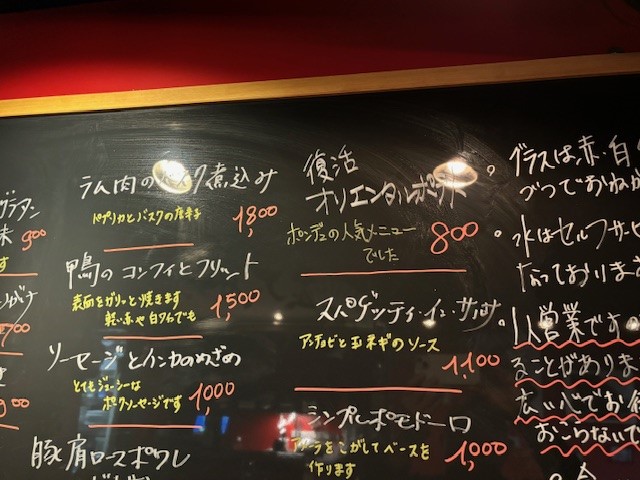 グラタン
味 900
ラム肉の 煮込み
パプリカとバスクの唐辛子
1,800
鴨のコンフィとフリット
表面をガリっと焼きます
軽い赤や白ワインでも
1,500
ソーセージとインカのめざめ
とてもジューシーな
ポークソーセージです
1,000
豚肩ロースポワレ
復活
オリエンタルポテト
ポンデュの人気メニュー
でした
800
スパゲッティ・イン・サルサ
アンチョビと玉ネギのソース
1,100
シンプルポモドーロ
をこがしてベースを
作ります
1,000
グラスは赤・白
づつでおねが
水はセルフサービ
なっておりま
1人営業ですの
ることがありま
広い心でお
おこらないで